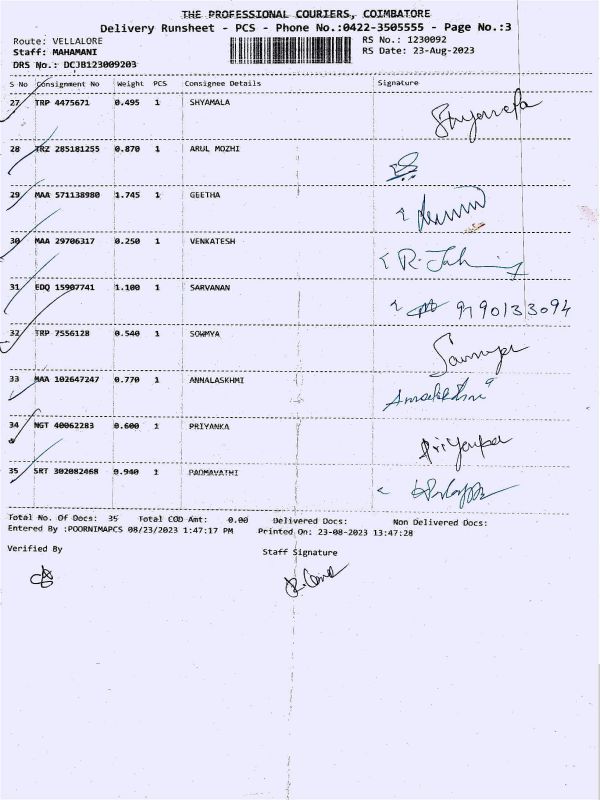 THE PROFESSIONAL COURIERS, COIMBATORE
Delivery Runsheet - PCS - Phone No.:0422-3505555 - Page No.:3
Route: VELLALORE RS No.: 1230092
Staff: MAHAMANI RS Date: 23-Aug-2023
DRS No.: DCJB123009203
S No Consignment No Weight PCS Consignee Details Signature
27 TRP 4475671 0.495 1 SHYAMALA Shyamala
28 TRZ 285181255 0.870 1 ARUL MOZHI
29 MAA 571138980 1.745 1 GEETHA
30 MAA 29706317 0.250 1 VENKATESH
31 EDQ 15907741 1.100 1 SARVANAN 9190133094
32 TRP 7556128 0.540 1 SOWMYA Sowmya
33 MAA 102647247 0.770 1 ANNALASKHMI
34 NGT 40062283 0.600 1 PRIYANKA Priyanka
35 SRT 302082468 0.940 1 PADMAVATHI
Total No. Of Docs: 35 Total COD Amt: 0.00 Delivered Docs: Non Delivered Docs:
Entered By :POORNIMAPCS 08/23/2023 1:47:17 PM Printed On: 23-08-2023 13:47:28
Verified By Staff Signature